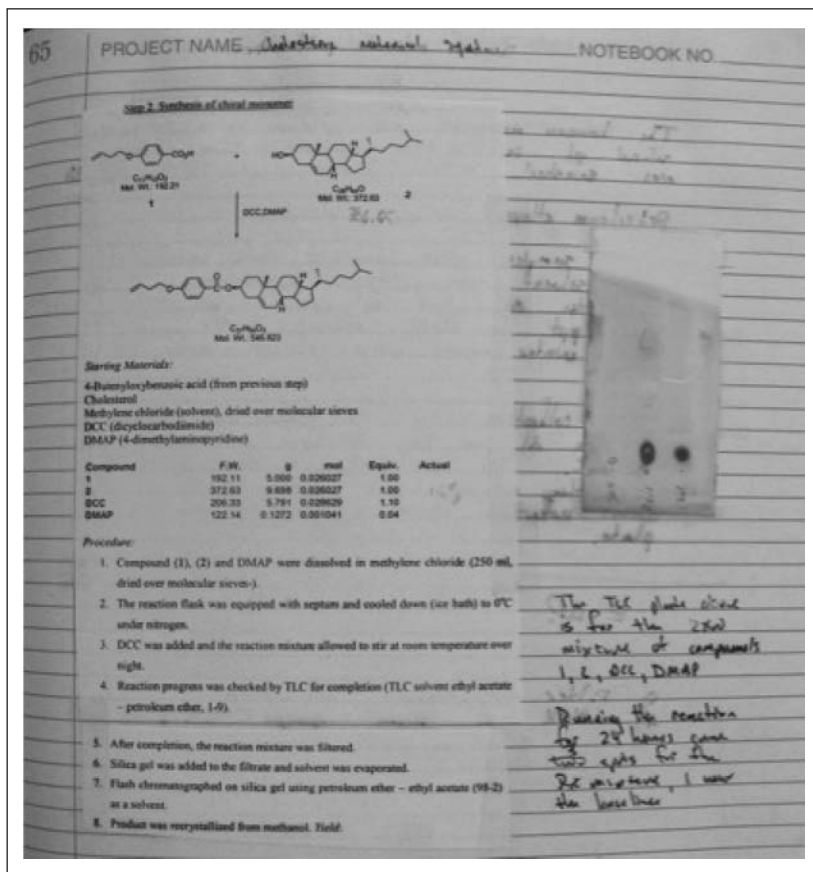 65 PROJECT NAME NOTEBOOK NO.
Step 2. Synthesis of chiral monomer
CO₂H + HO
H
C₁₁H₁₂O₃
Mol. Wt.: 192.21
Mol. Wt.: 372.63
1 2
DCC, DMAP
Mol. Wt.: 546.823
Starting Materials:
4-Butenyloxybenzoic acid (from previous step)
Cholesterol
Methylene chloride (solvent), dried over molecular sieves
DCC (dicyclocarbodiimide)
DMAP (4-dimethylaminopyridine)
Compound F.W. g mol Equiv. Actual
1 192.11 5.000 0.026027 1.00
2 372.63 9.698 0.026027 1.00
DCC 206.33 5.791 0.028629 1.10
DMAP 122.14 0.1272 0.001041 0.04
Procedure:
1. Compound (1), (2) and DMAP were dissolved in methylene chloride (250 ml,
dried over molecular sieves-).
2. The reaction flask was equipped with septum and cooled down (ice bath) to 0°C
under nitrogen.
3. DCC was added and the reaction mixture allowed to stir at room temperature over
night.
4. Reaction progress was checked by TLC for completion (TLC solvent ethyl acetate
– petroleum ether, 1-9).
5. After completion, the reaction mixture was filtered.
6. Silica gel was added to the filtrate and solvent was evaporated.
7. Flash chromatographed on silica gel using petroleum ether – ethyl acetate (98-2)
as a solvent.
8. Product was recrystallized from methanol. Yield:
The TLC plate above
is for the
mixture of compounds
1, 2, DCC, DMAP
Running the reaction
for 24 hours gave
two spots for the
Rx mixture, 1 near
the baseline